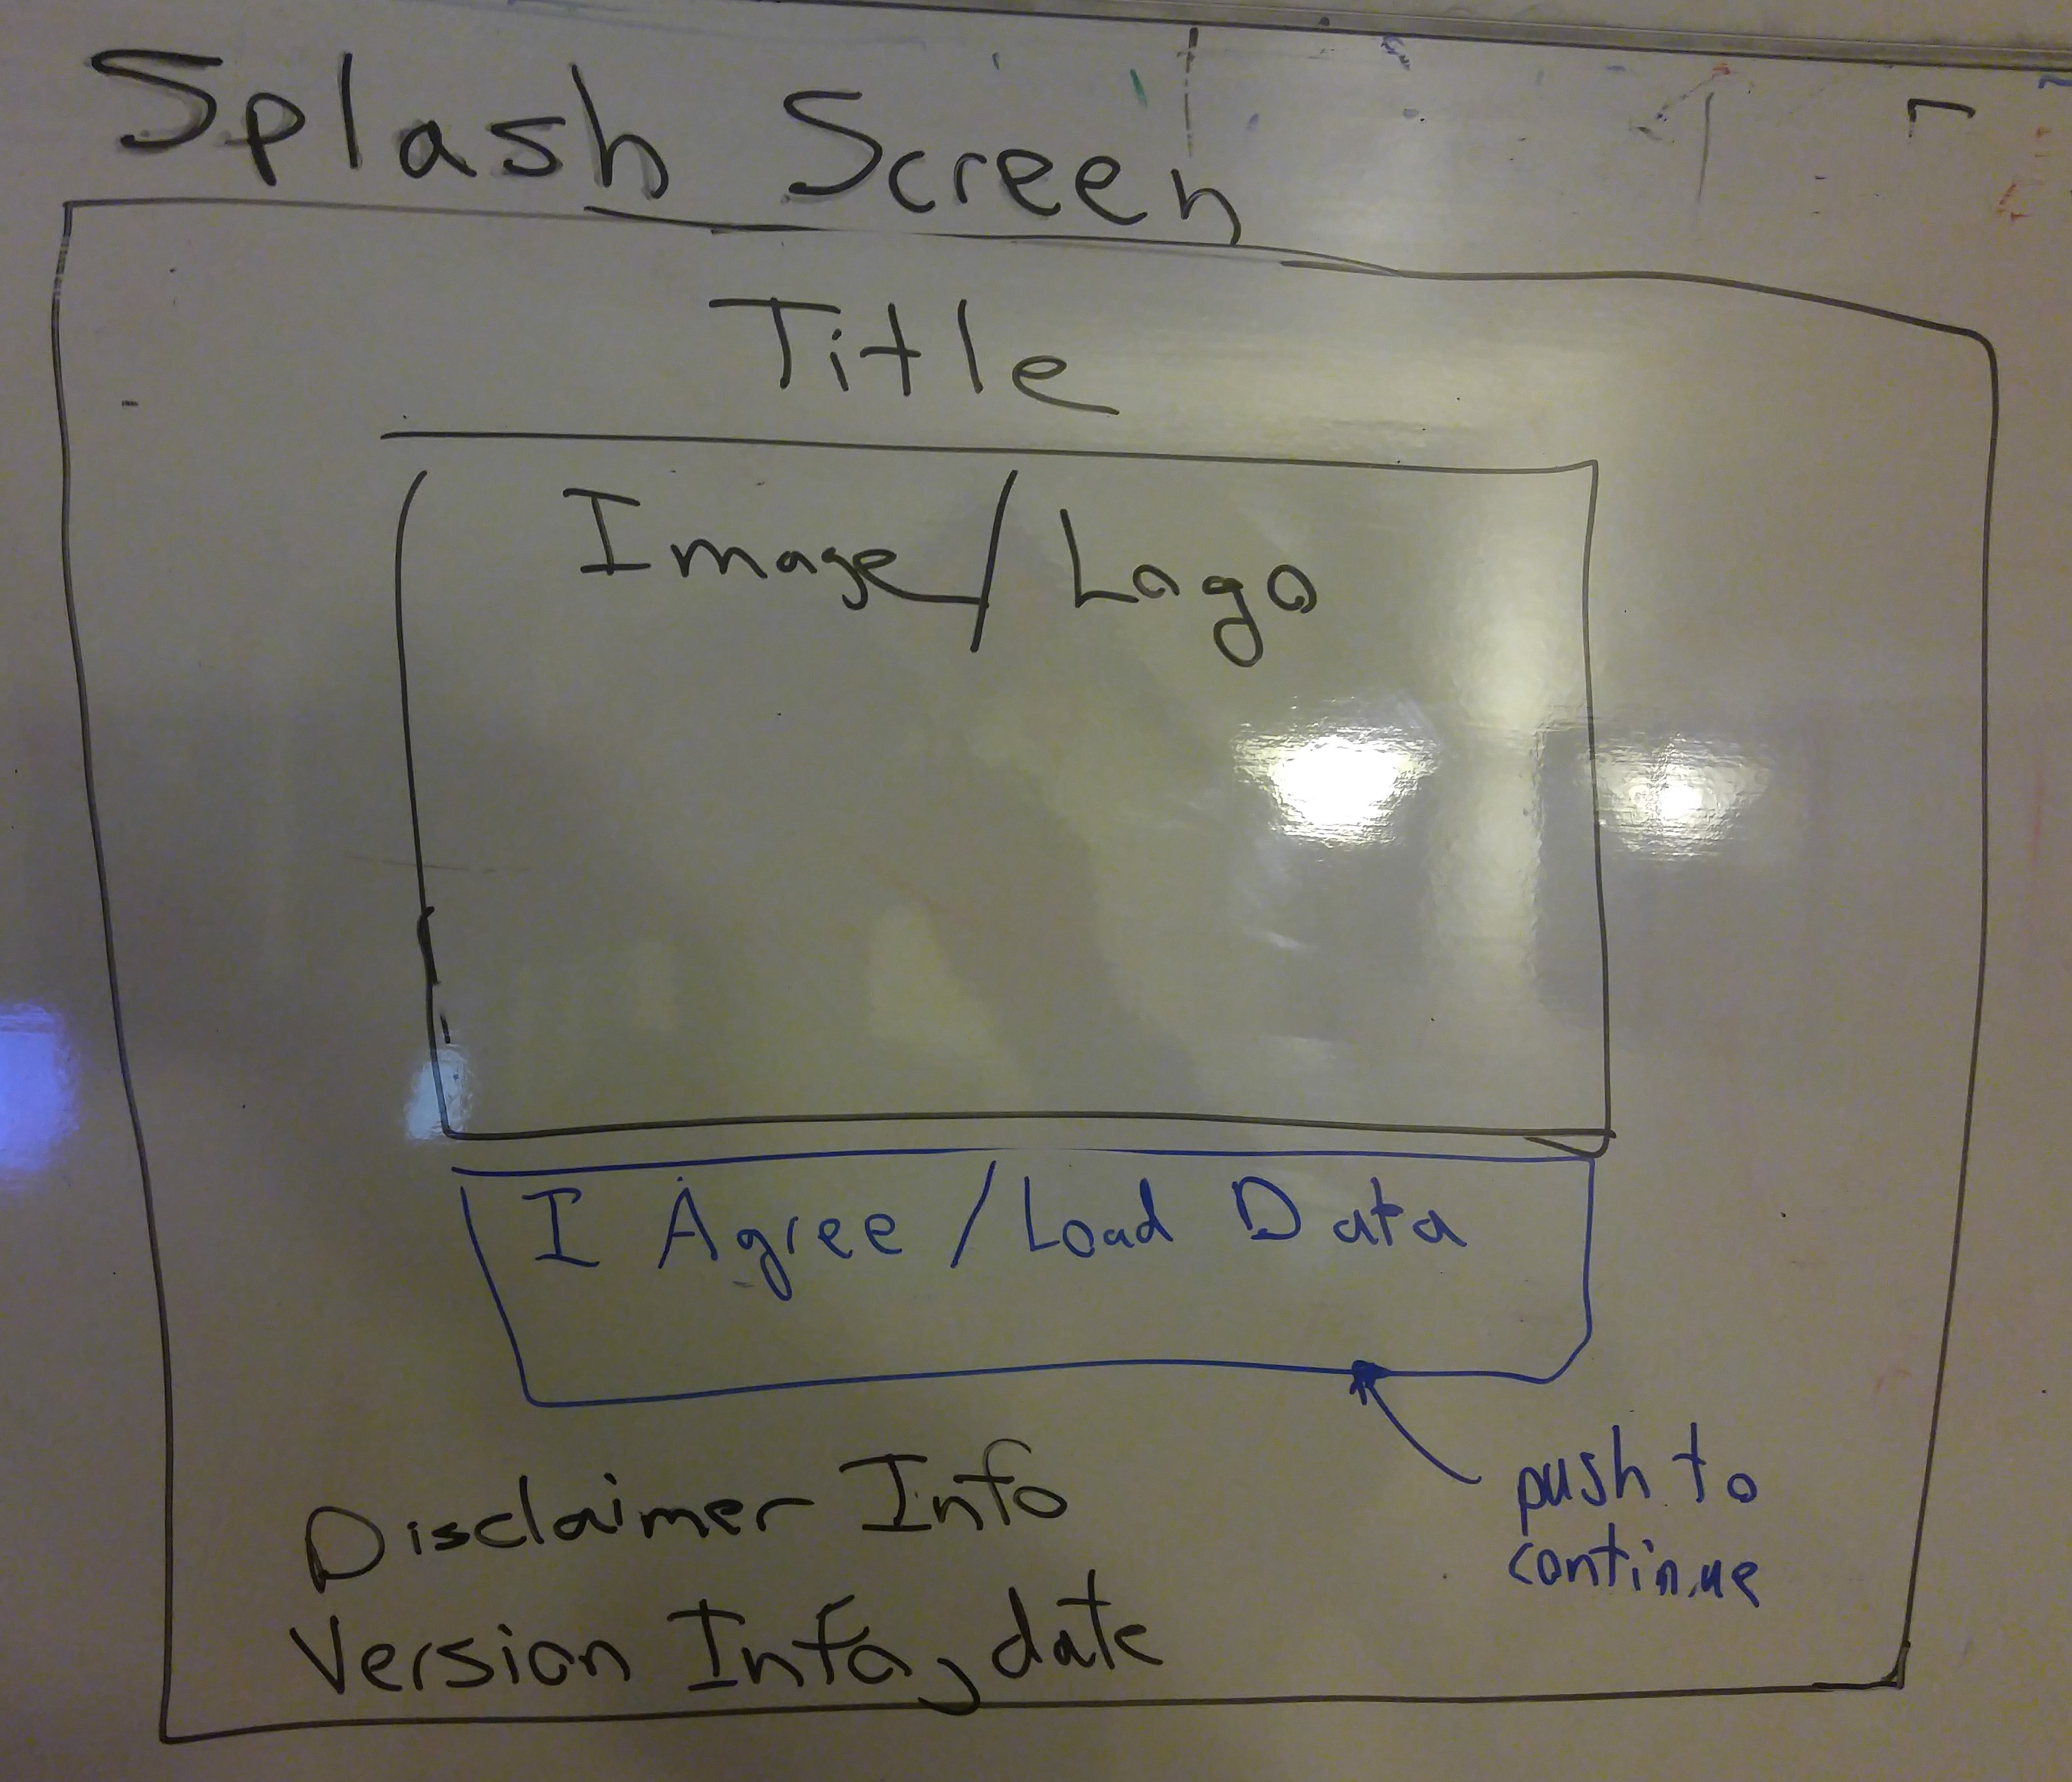 Splash Screen
Title
Image/Logo
I Agree / Load Data
push to
continue
Disclaimer Info
Version Info, date